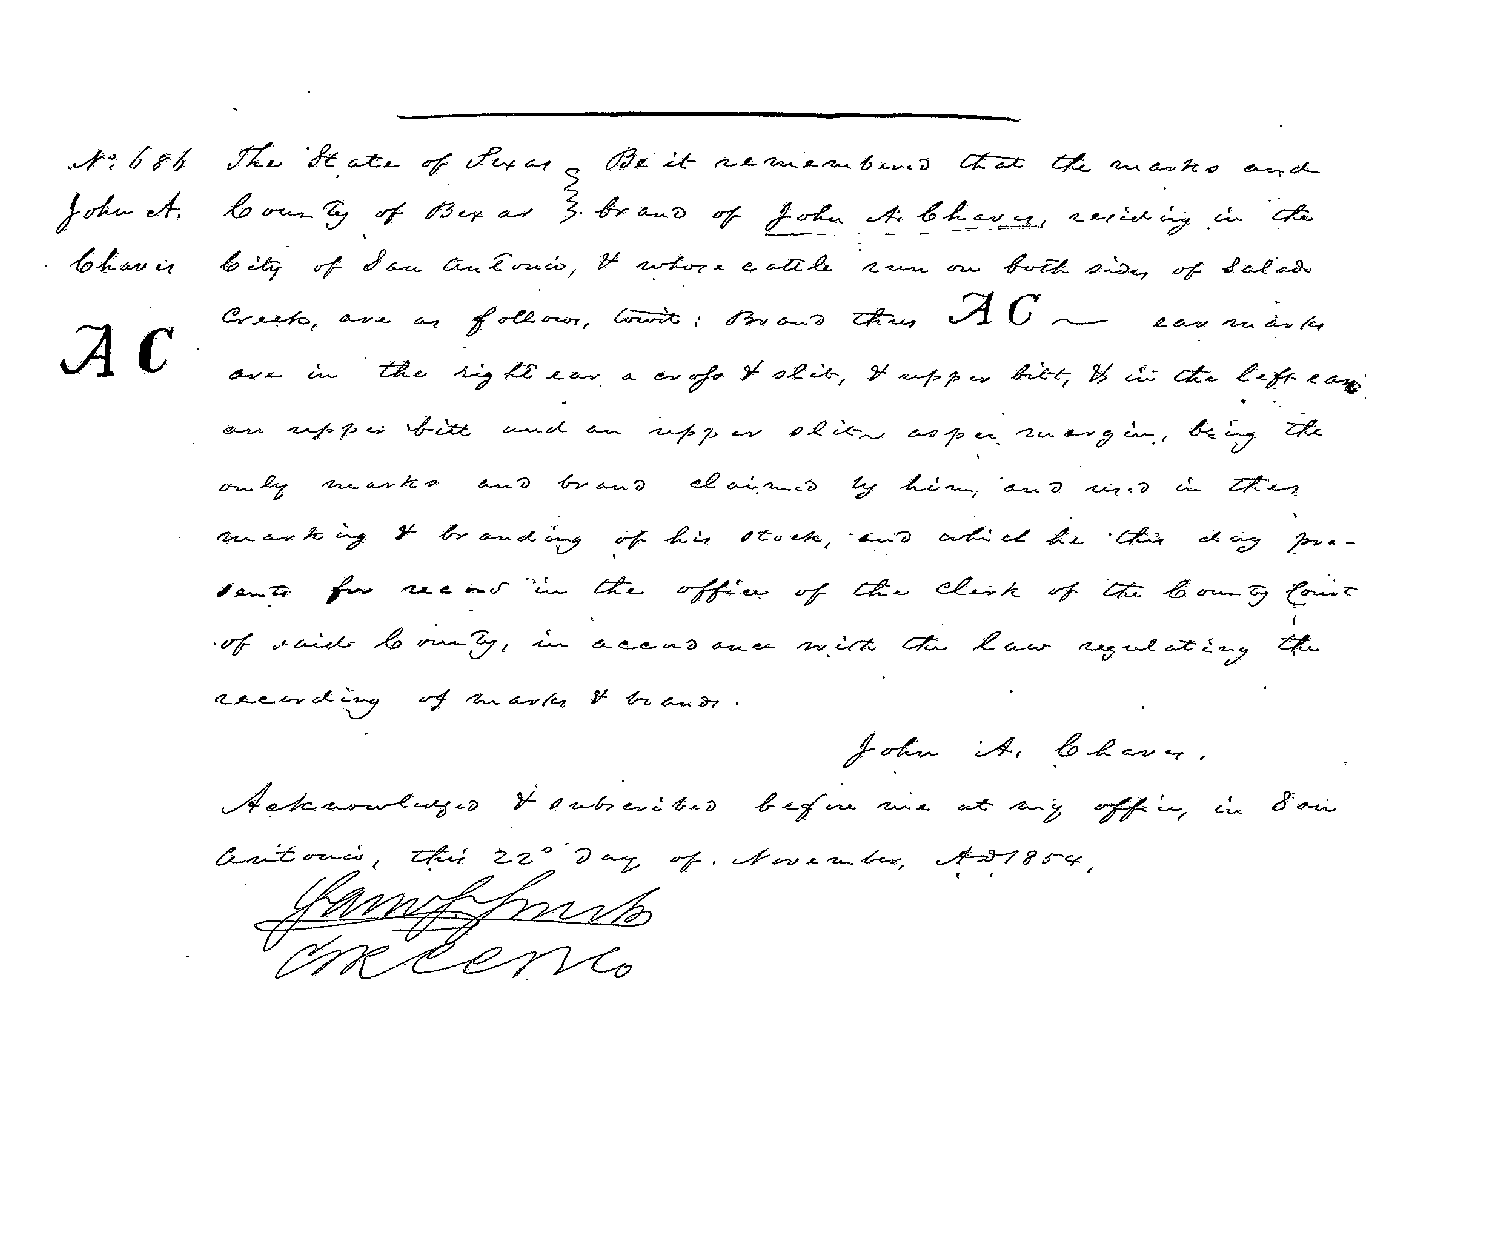 No. 686 The State of Texas } Be it remembered that the marks and
John A. County of Bexar } brand of John A. Chaves, residing in the
Chaves City of San Antonio, & whose cattle run on both sides of Salado
Creek, are as follows, towit: Brand thus AC ~ ear marks
AC are in the right ear a cross & slit, & upper bitt, & in the left ear
an upper bitt and an upper slit ~ as per margin, being the
only marks and brand claimed by him, and used in the
marking & branding of his stock, and which he this day pre-
sents for record in the office of the Clerk of the County Court
of said County, in accordance with the law regulating the
recording of marks & brands.
John A. Chaves.
Acknowledged & subscribed before me at my office, in San
Antonio, this 22d Day of November, AD 1854.